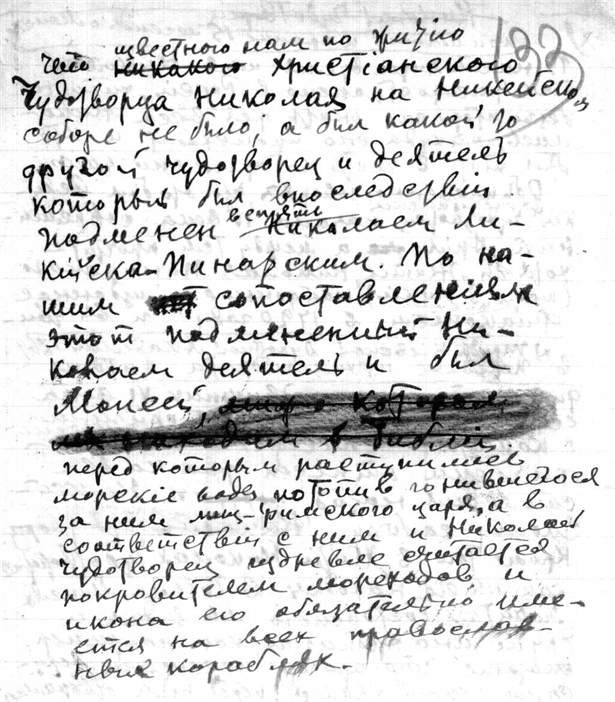 132
известного нам по житію
что никакого христіанского
Чудотворца Николая на Никейском
соборе не было, а был какой то
другой чудотворец и деятель
который был впоследствіи
подменен Николаем Ли-
кійска-Пинарским. По на-
шим сопоставленіям
этот подмененный Ни-
колаем деятель и был
Моисей,
перед которым раступились
морскіе воды потопив гонившегося
за ним римского царя, а в
соответствіи с ним и Николай
Чудотворец издревле считается
покровителем мореходов, и
икона его обязательно име-
ется на всех православ-
ных кораблях.